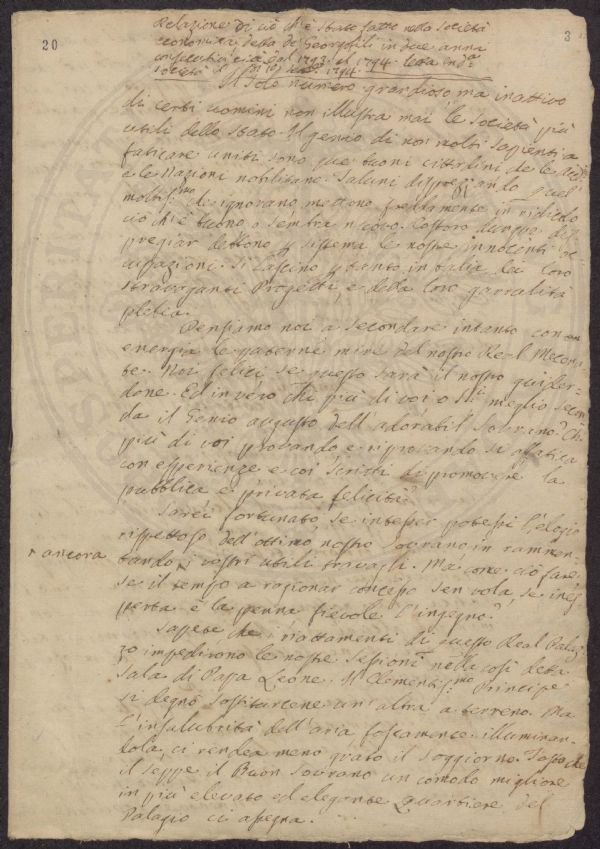 20
3
Relazione di ciò ch'è stato fatto nella Società
economica detta de Georgofili in due anni
cioè dal 1793 al 1794. Letta in d.a
Società 1794.
Il solo numero grandioso ma inattivo
di certi uomini non illustra mai le Società più
utili dello Stato. Il genio di non molti sapienti a
faticare uniti, sono que' buoni cittadini che le
e le Nazioni nobilitano. Taluni disprezzando quel
moltiss.mo che ignorano mettono freddamente in ridicolo
ciò ch'è buono, o sembra nuovo. Costoro dunque dis
pregiar debbono p sistema le nostre innocenti oc
cupazioni. Si lascino p tanto in balia dei loro
stravaganti Progetti, e della loro garrulità
plebea.
Pensiamo noi a secondare intanto con
energia le paterne mire del nostro Real Mecena
te. Noi felici se questo sarà il nostro guider
done. Ed invero chi più di voi o Sig.ri meglio secon
da il Genio augusto dell'adorabil Sovrano? Chi
più di voi provando e riprovando si affatica
con esperienze e coi scritti di promovere la
pubblica e privata felicità?
Sarei fortunato, se intesser potessi l'elogio
rispettoso dell'ottimo nostro Sovrano in rammen
ancora
tando i vostri utili travagli. Ma come ciò fare,
se il tempo a ragionar concesso sen vola, se ines
perta è la penna fievole l'ingegno?
Sapete che i riattamenti di questo Real Palaz
zo impedirono le nostre sessioni nella così detta
Sala di Papa Leone. Il Clementiss.mo Principe
si degnò sostituircene un'altra a terreno. Ma
l'insalubrità dell'aria foscamente illuminan
dola, ci rendea meno grato il soggiorno. Tosto che
il seppe il Buon Sovrano un comodo migliore
in più elevato ed elegante Quartiere del
Palazio ci assegna.